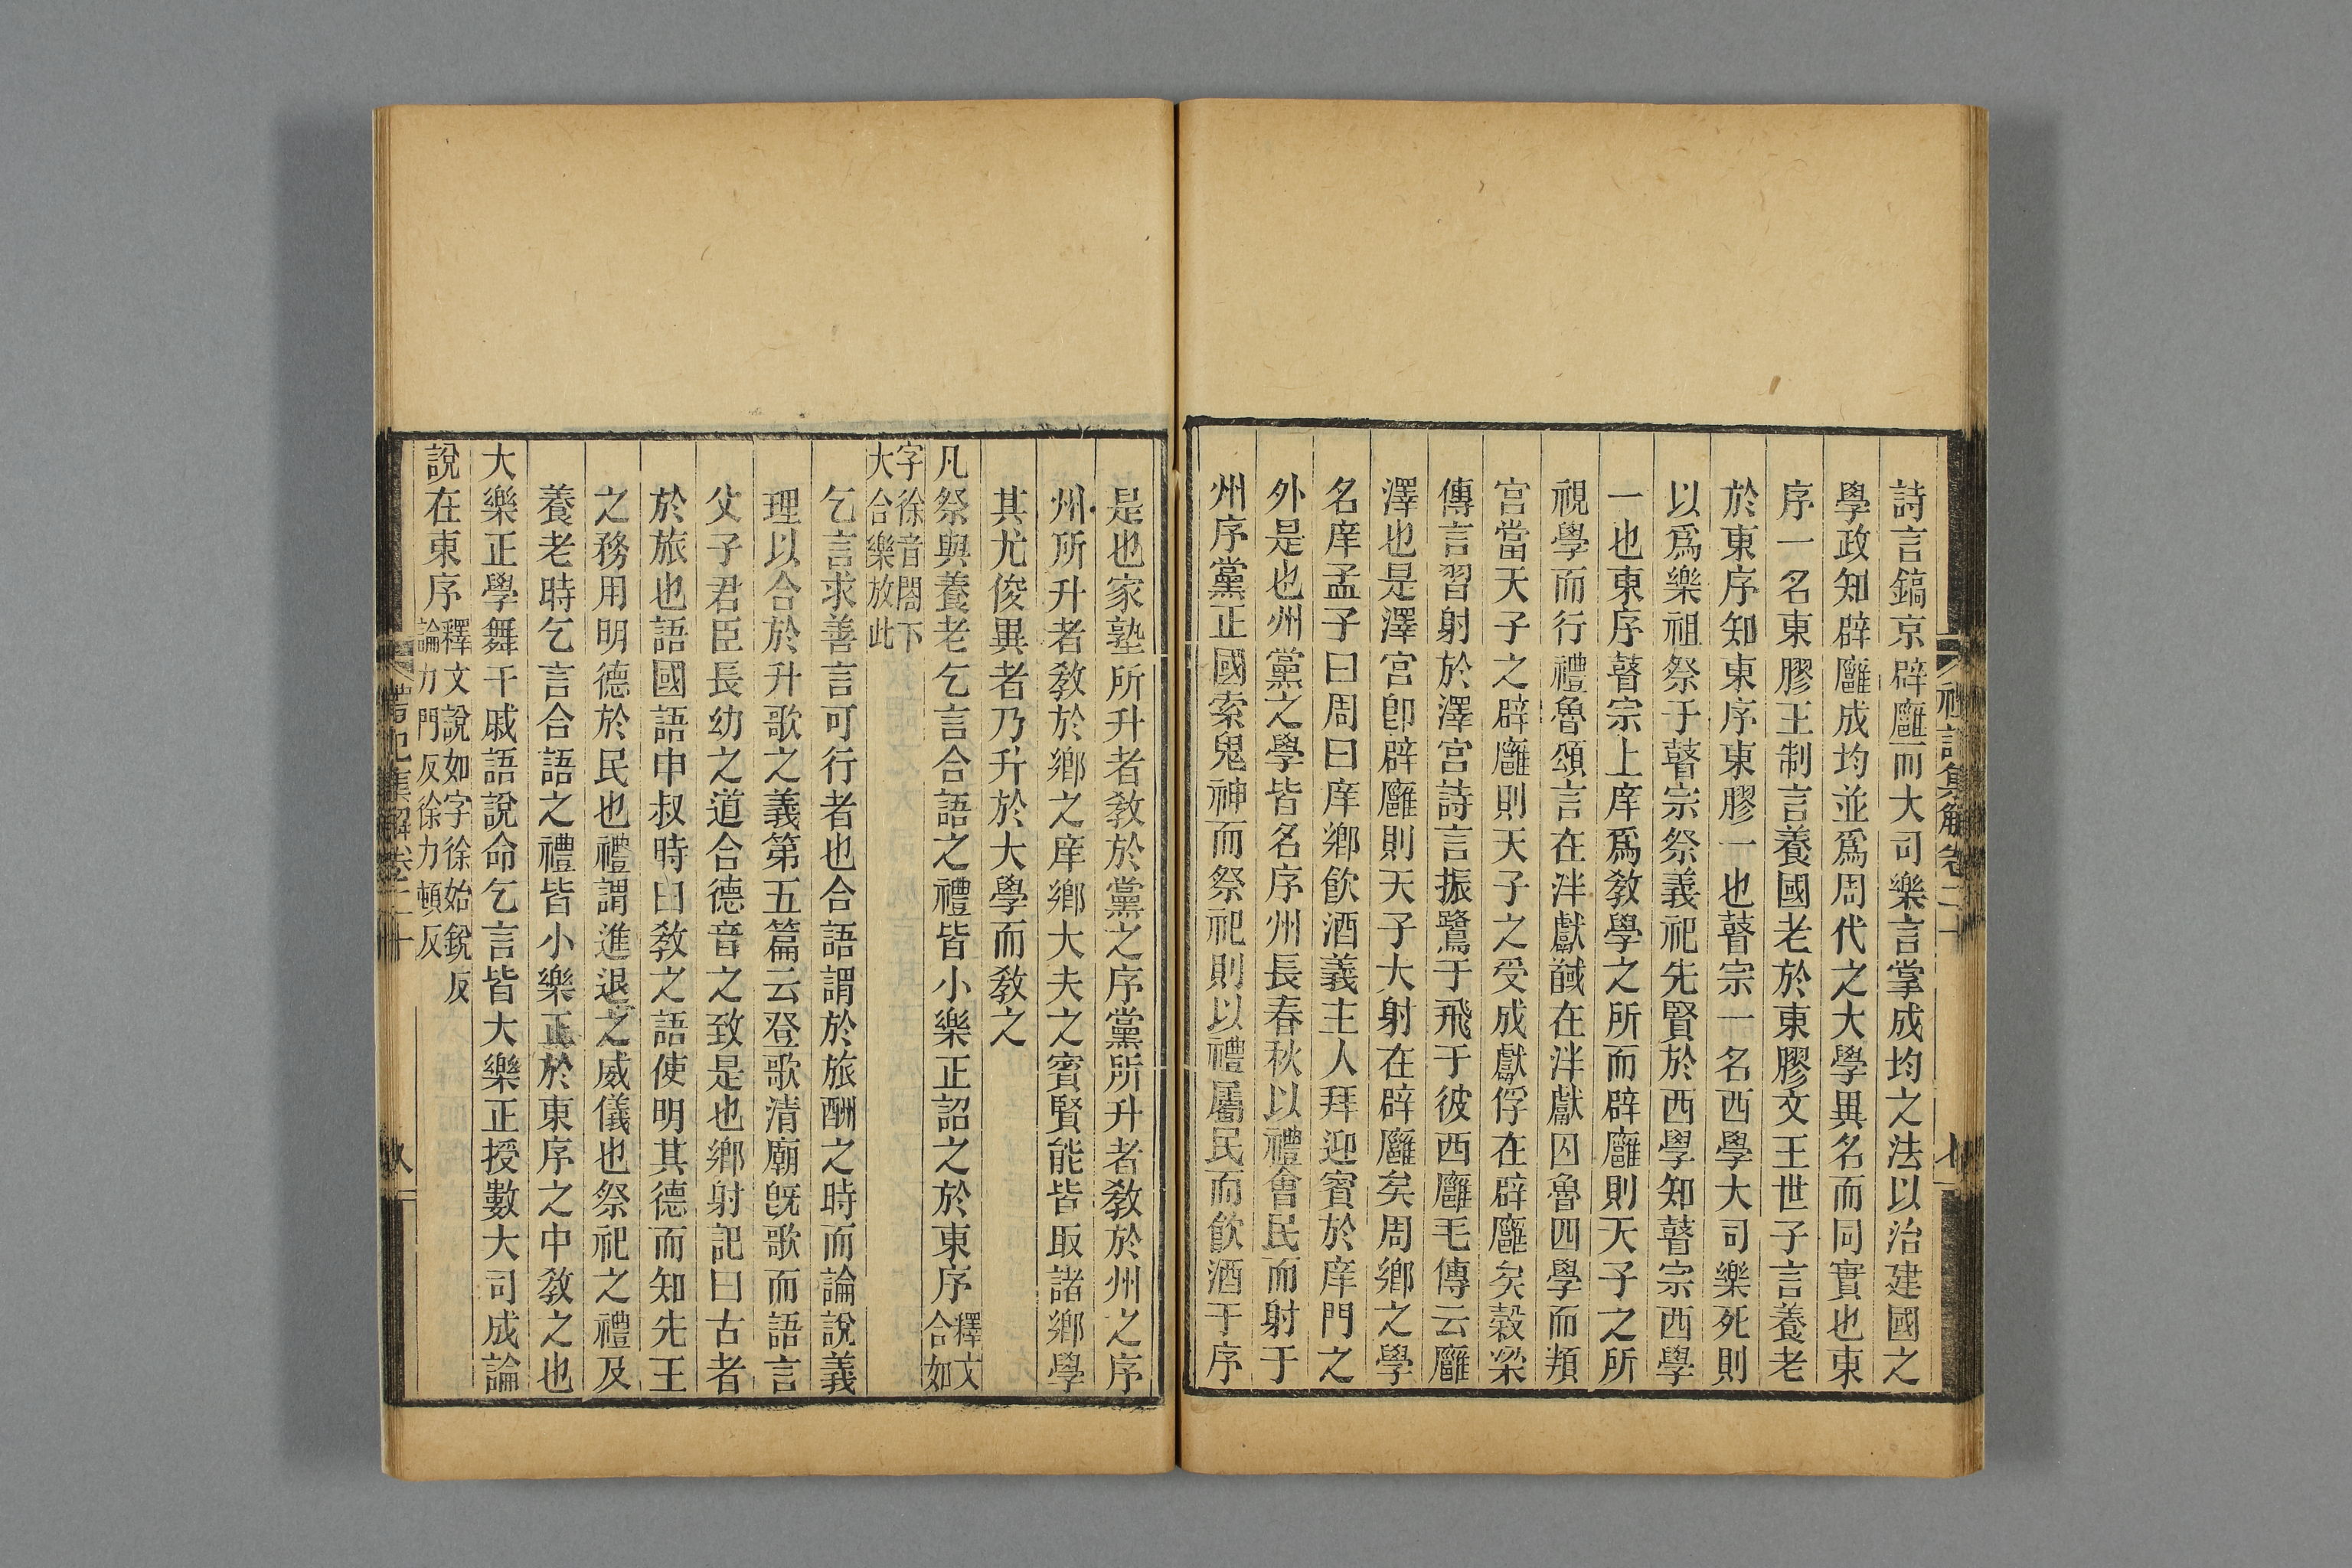 禮記集解卷二十
七
詩言鎬京辟廱而大司樂言掌成均之法以治建國之
學政知辟廱成均並爲周代之大學異名而同實也東
序一名東膠王制言養國老於東膠文王世子言養老
於東序知東序東膠一也瞽宗一名西學大司樂死則
以爲樂祖祭于瞽宗祭義祀先賢於西學知瞽宗西學
一也東序瞽宗上庠爲敎學之所而辟廱則天子之所
視學而行禮魯頌言在泮獻馘在泮獻囚魯四學而頖
宮當天子之辟廱則天子之受成獻俘在辟廱矣穀梁
傳言習射於澤宮詩言振鷺于飛于彼西廱毛傳云廱
澤也是澤宮卽辟廱則天子大射在辟廱矣周鄕之學
名庠孟子曰周曰庠鄕飮酒義主人拜迎賓於庠門之
外是也州黨之學皆名序州長春秋以禮會民而射于
州序黨正國索鬼神而祭祀則以禮屬民而飮酒于序
是也家塾所升者敎於黨之序黨所升者敎於州之序
州所升者敎於鄕之庠鄕大夫之賓賢能皆取諸鄕學
其尤俊異者乃升於大學而敎之
凡祭與養老乞言合語之禮皆小樂正詔之於東序釋文合如
字徐音閤下大合樂放此
乞言求善言可行者也合語謂於旅酬之時而論說義
理以合於升歌之義第五篇云登歌清廟旣歌而語言
父子君臣長幼之道合德音之致是也鄕射記曰古者
於旅也語國語申叔時曰敎之語使明其德而知先王
之務用明德於民也禮謂進退之威儀也祭祀之禮及
養老時乞言合語之禮皆小樂正於東序之中敎之也
大樂正學舞干戚語說命乞言皆大樂正授數大司成論
說在東序釋文說如字徐始銳反論力門反徐力頓反
禮記集解卷二十
八